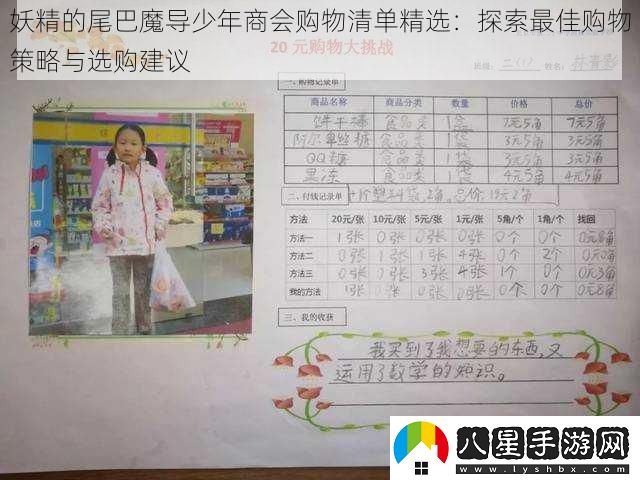 妖精的尾巴魔导少年商会购物清单精选：探索最佳购物
策略与选购建议
20 元购物大挑战
班级: 二(1) 姓名:
一、购物记录单
商品名称 商品分类 数量 价格 总价
饼干棒 食品类 1盒 7元5角 7元5角
阿尔卑丝糖 食品类 1袋 3元5角 3元5角
QQ糖 食品类 1袋 3元5角 3元5角
果冻 食品类 1袋 4元5角 4元5角
二、付钱记录单 十1个塑料袋,2角。总价:19元2角
方法 20元/张 10元/张 5元/张 1元/张 5角/个 1角/个 找回
方法一 1张 0张 0张 0张 0个 0个 0元8角
方法二 0张 1张 1张 4张 0个 2个 0元0角
方法三 0张 0张 3张 4张 1个 0个 0元3角
我的方法 1张 0张 0张 0张 0个 0个 0元8角
三、我的收获
我买到了我想要的东西,又
运用了数学的知识。
八星手游网
www.lyshbx.com